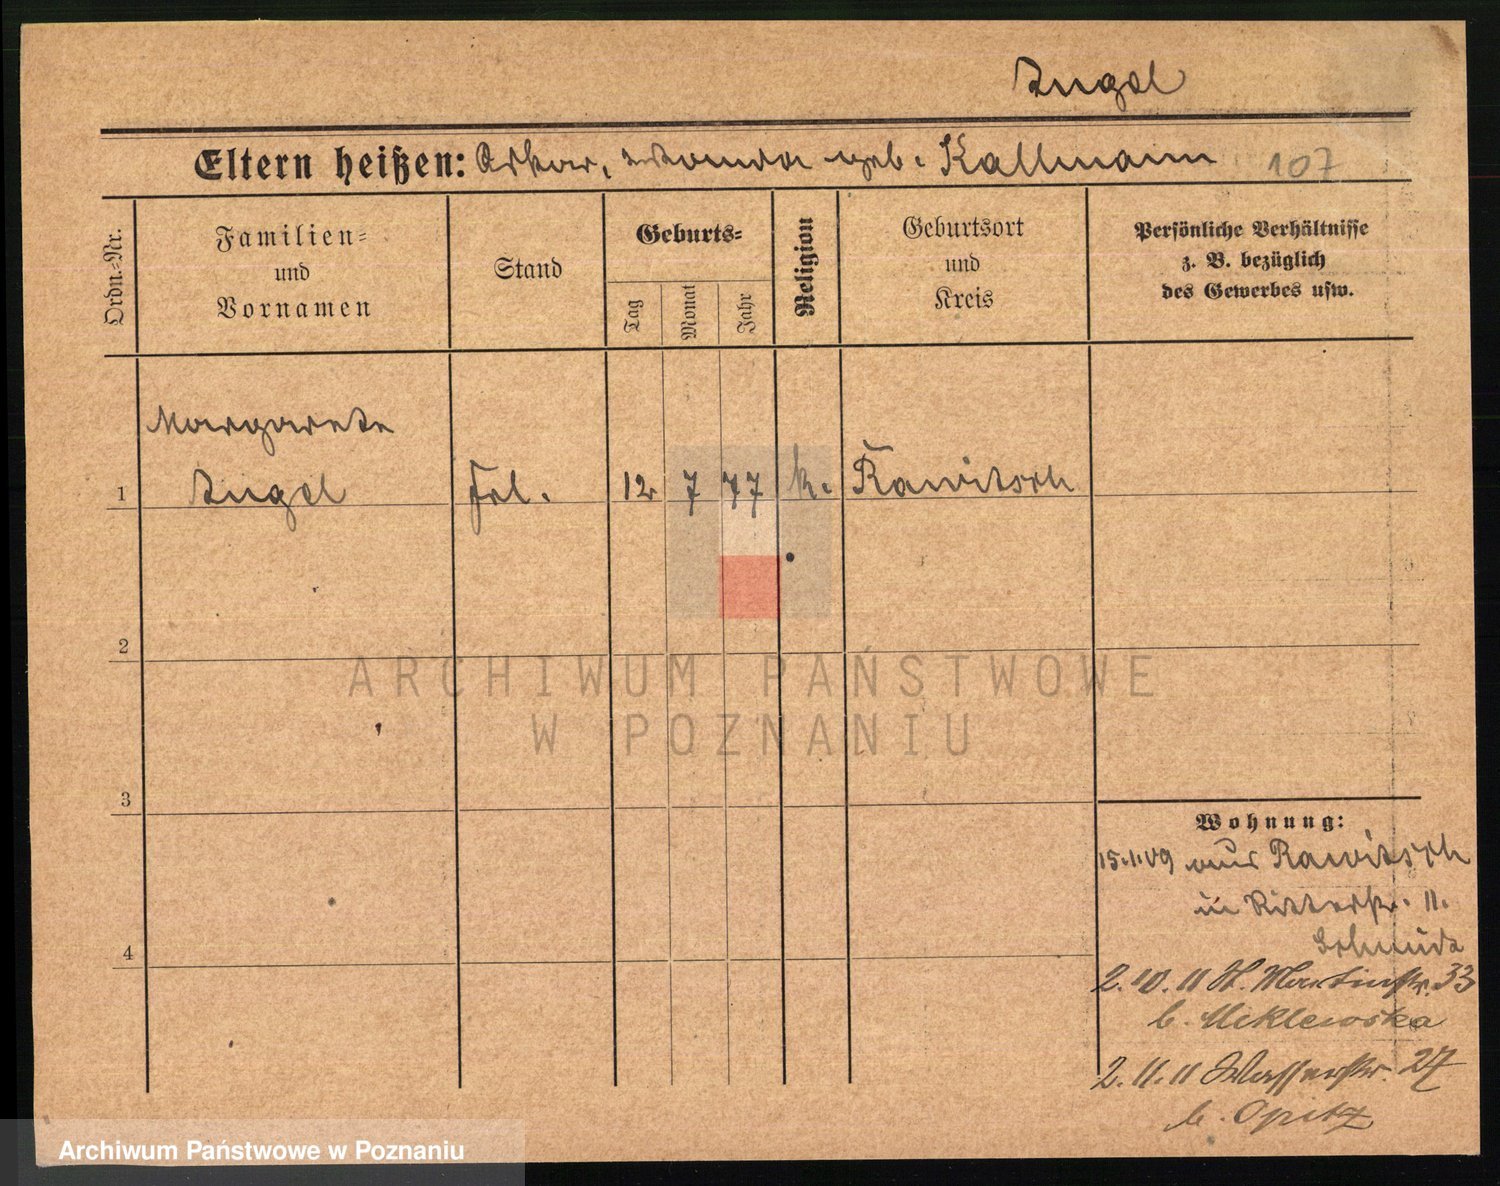 107
Eltern heißen: geb. Kallmann
Ordn.-Nr.
Familien-
und
Vornamen
Stand
Geburts-
Tag
Monat
Jahr
Religion
Geburtsort
und
Kreis
Persönliche Verhältnisse
z. B. bezüglich
des Gewerbes usw.
Margarete
1 Frl. 12 7 77 k. Rawitsch
2
ARCHIWUM PAŃSTWOWE
W POZNANIU
3
4
Wohnung:
15.1.09 aus Rawitsch
in Ritterstr. 11.
2.10.11 St. Martinstr. 33
b. Meklewska
2.11.11 Wasserstr. 27
b. Opitz
Archiwum Państwowe w Poznaniu